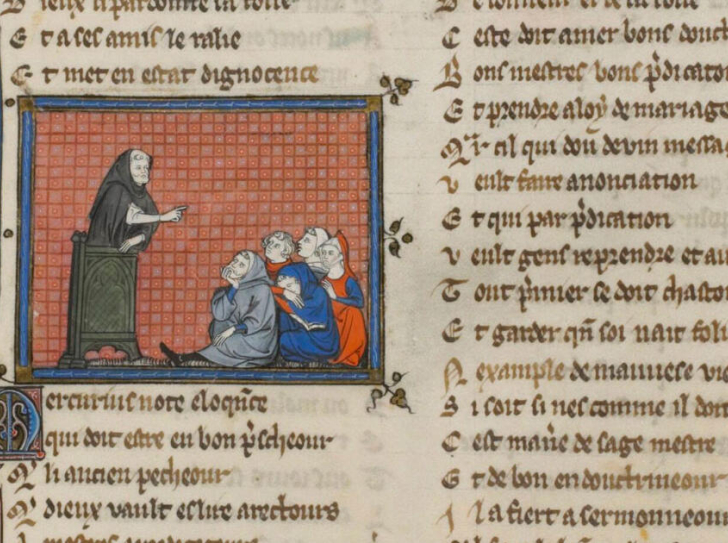 Dieux li pardonne la folie
Et a ses amis le ralie
Et met en estat dignocence
Mercurius note eloqnce
qui doit estre en bon pscheour
Q li ancien pecheour
Q dieux vault eslire a rectours
Ceste doit amer bons douct
Bons mestres bons pdicator
Et prendre a loy de mariage
Qr cil qui dou devin messa
Veult faire anonciation
Et qui par pdication
Veult gens reprendre et au
Tout pmier se doit chastoi
Et garder qn soi nait foli
N example de mauvese vie
Si soit si nes comme il doi
Cest mane de sage mestre
Et de bon endouctrineour
Il afiert a sermonneour